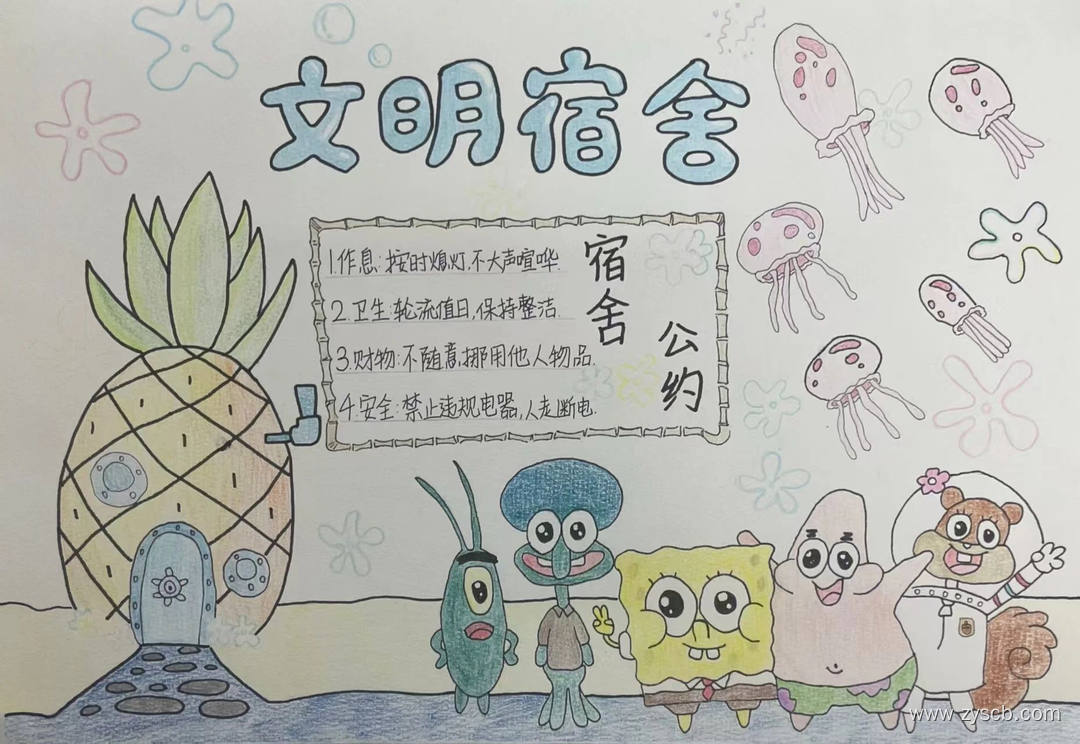 文明宿舍
宿舍
公约
1.作息:按时熄灯,不大声喧哗.
2.卫生:轮流值日,保持整洁.
3.财物:不随意挪用他人物品.
4.安全:禁止违规电器,人走断电.
www.zyscb.com